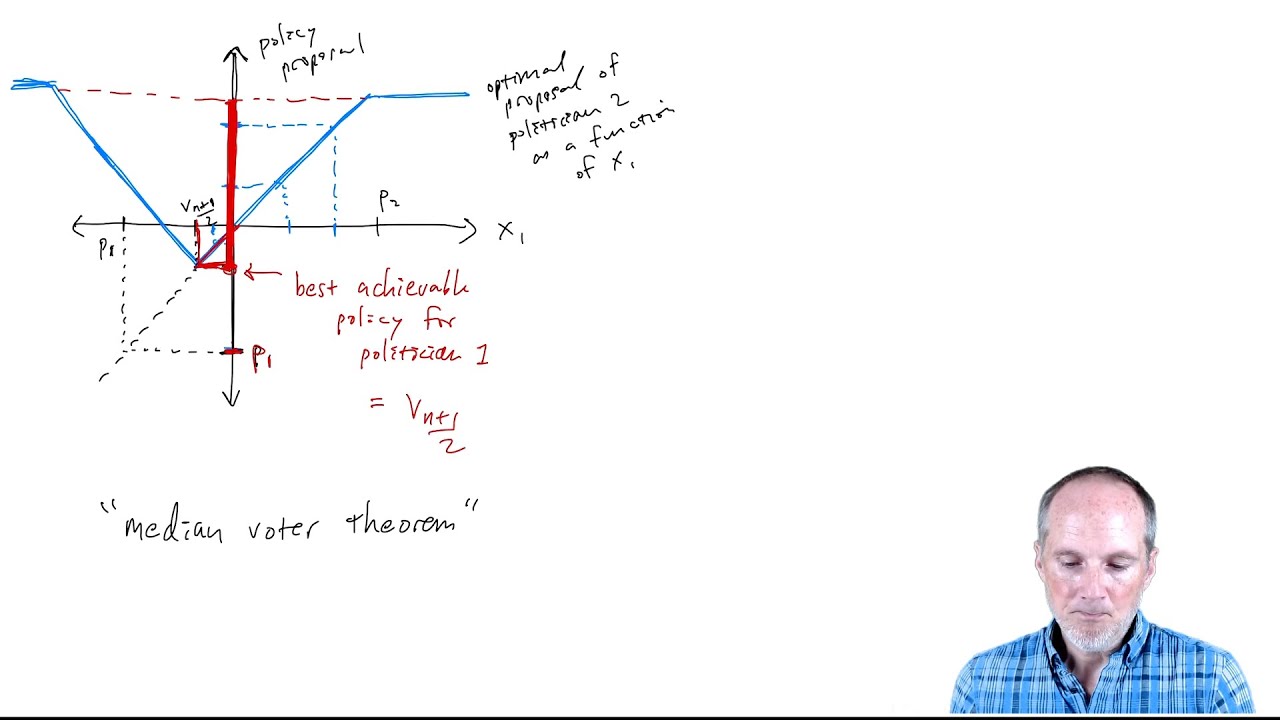 policy
proposal
optimal
proposal of
politician 2
as a function
of x₁
v n+1
2
p₂
p₁
x₁
best achievable
policy for
politician 1
p₁
= v n+1
2
"median voter theorem"